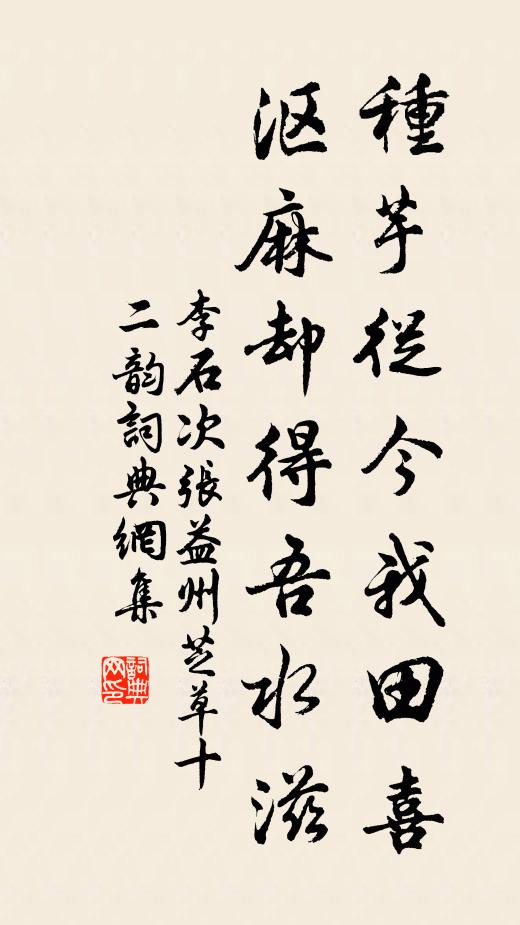 種芋從今我田喜
沤麻却得吾水滋
李石次張益州芝草十
二韵詞典網集
詞典
网印